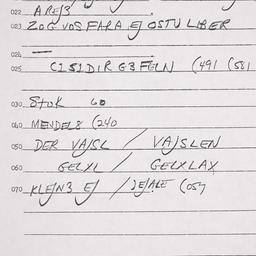 022 AREJ3
023 ZOG VOS FARA EJ OSTU LIBER
024 —
025 CISIDIR G3FELN (491 (581
030 STOK 60
040 MENDEL8 (240
050 DER VAJSL / VAJSLEN
060 GELXL / GELXLAX
070 KLEJN3 EJ / JEJALE (057